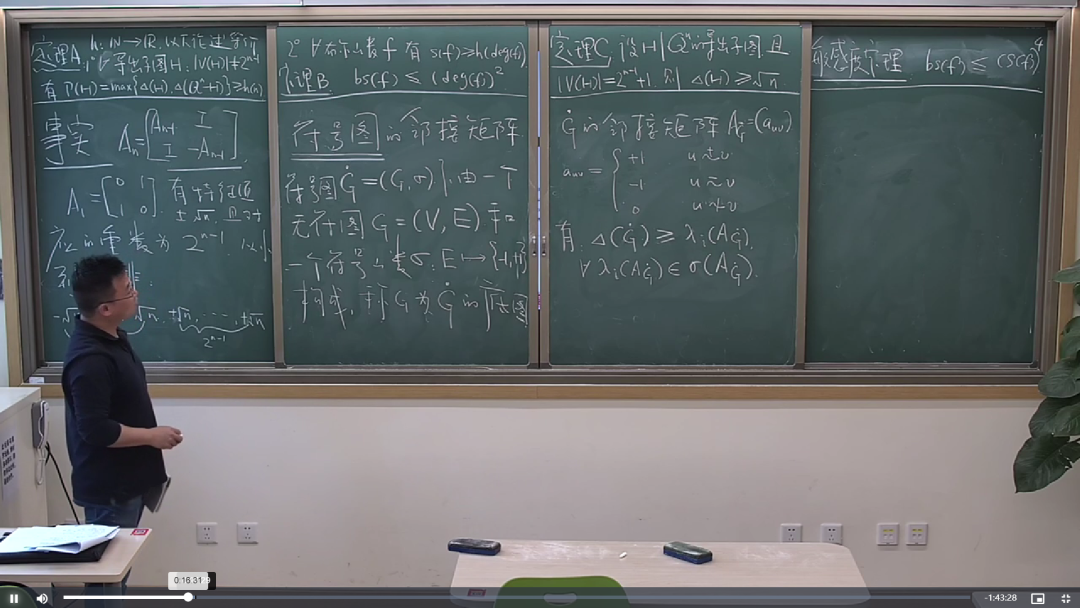 定理A h: N→R, 以下论述等价
1° ∀导出子图H: |V(H)|≠2^{n-1}
有 Γ(H)=max{Δ(H),Δ(Q^n-H)}≥h(n)
事实 A_n=[A_{n-1} I
I -A_{n-1}].
A_1=[0 1
1 0] 有特征值
±√n. 且
的重数为 2^{n-1}.
-√n √n, +√n, ..., +√n
2^{n-1}
2° ∀布尔函数f 有 s(f)≥h(deg(f)).
定理B bs(f)≤(deg(f))^2
符号图的邻接矩阵
符号图Ġ=(G,σ)是由一个
无符图G=(V,E)和
一个符号函数σ:E↦{-1,+1}
构成, 称G为Ġ的底图
定理C 设H是Q^n的导出子图且
|V(H)|=2^{n-1}+1. 则 Δ(H)≥√n
Ġ的邻接矩阵A_Ġ=(a_{uv})
a_{uv}={ +1 u~v
-1 u~v
0 u≁v
有. Δ(Ġ)≥λ_i(A_Ġ).
∀λ_i(A_Ġ)∈σ(A_Ġ).
敏感度定理 bs(f)≤(S(f))^4
-1:43:28